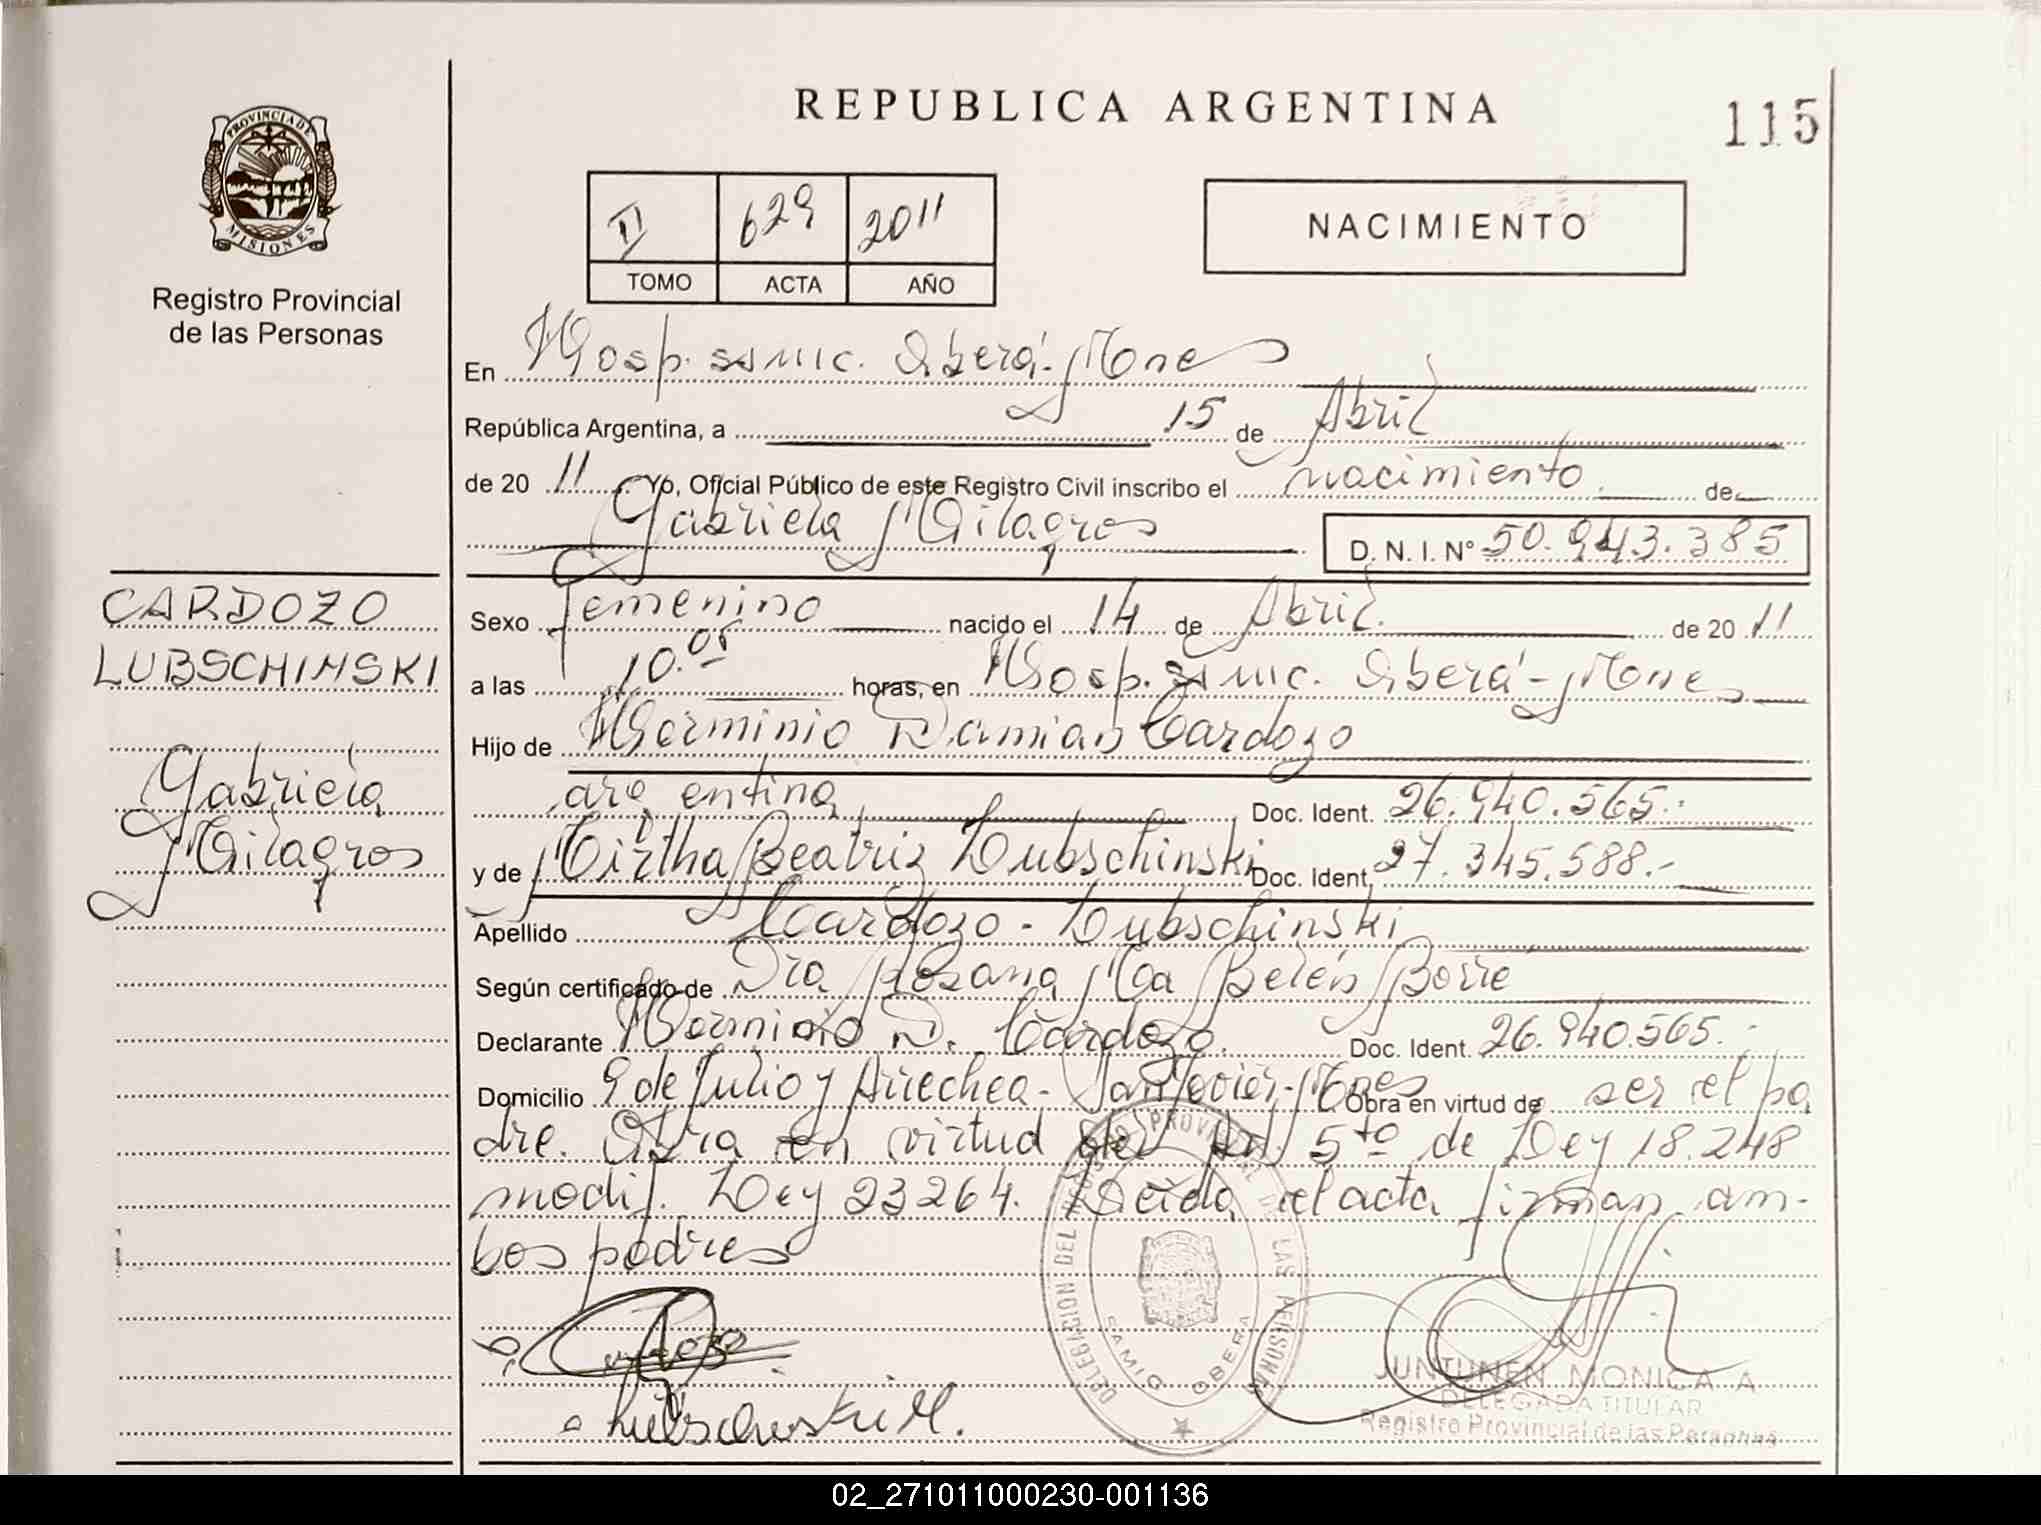 PROVINCIA DE
MISIONES
Registro Provincial
de las Personas
CARDOZO
LUBSCHINSKI
Gabriela
Milagros
REPUBLICA ARGENTINA
115
II 629 2011
TOMO ACTA AÑO
NACIMIENTO
En Hosp. ssmic. Oberá - Mnes
República Argentina, a 15 de Abril
de 2011 Yo, Oficial Público de este Registro Civil inscribo el nacimiento de
Gabriela Milagros D. N. I. Nº 50.943.385
Sexo femenino nacido el 14 de Abril de 2011
a las 10.05 horas, en Hosp. ssmic. Oberá - Mnes
Hijo de Herminio Damian Cardozo
argentina Doc. Ident. 26.940.565.-
y de Mirtha Beatriz Lubschinski Doc. Ident. 27.345.588.-
Apellido Cardozo - Lubschinski
Según certificado de Dra Rosana Ma Belén Borre
Declarante Herminio D. Cardozo. Doc. Ident. 26.940.565.-
Domicilio 9 de Julio y Arrechea - San Javier - Mnes Obra en virtud de ser el pa
dre. Obra en virtud del 5to de Ley 18.248
modif. Ley 23264. Leida el acta firman am-
bos padres
Cardozo
Lubschinski M.
DELEGACION DEL REGISTRO PROVINCIAL DE LAS PERSONAS
OBERA
JUNTUNEN MONICA A
DELEGADA TITULAR
Registro Provincial de las Personas
02_271011000230-001136